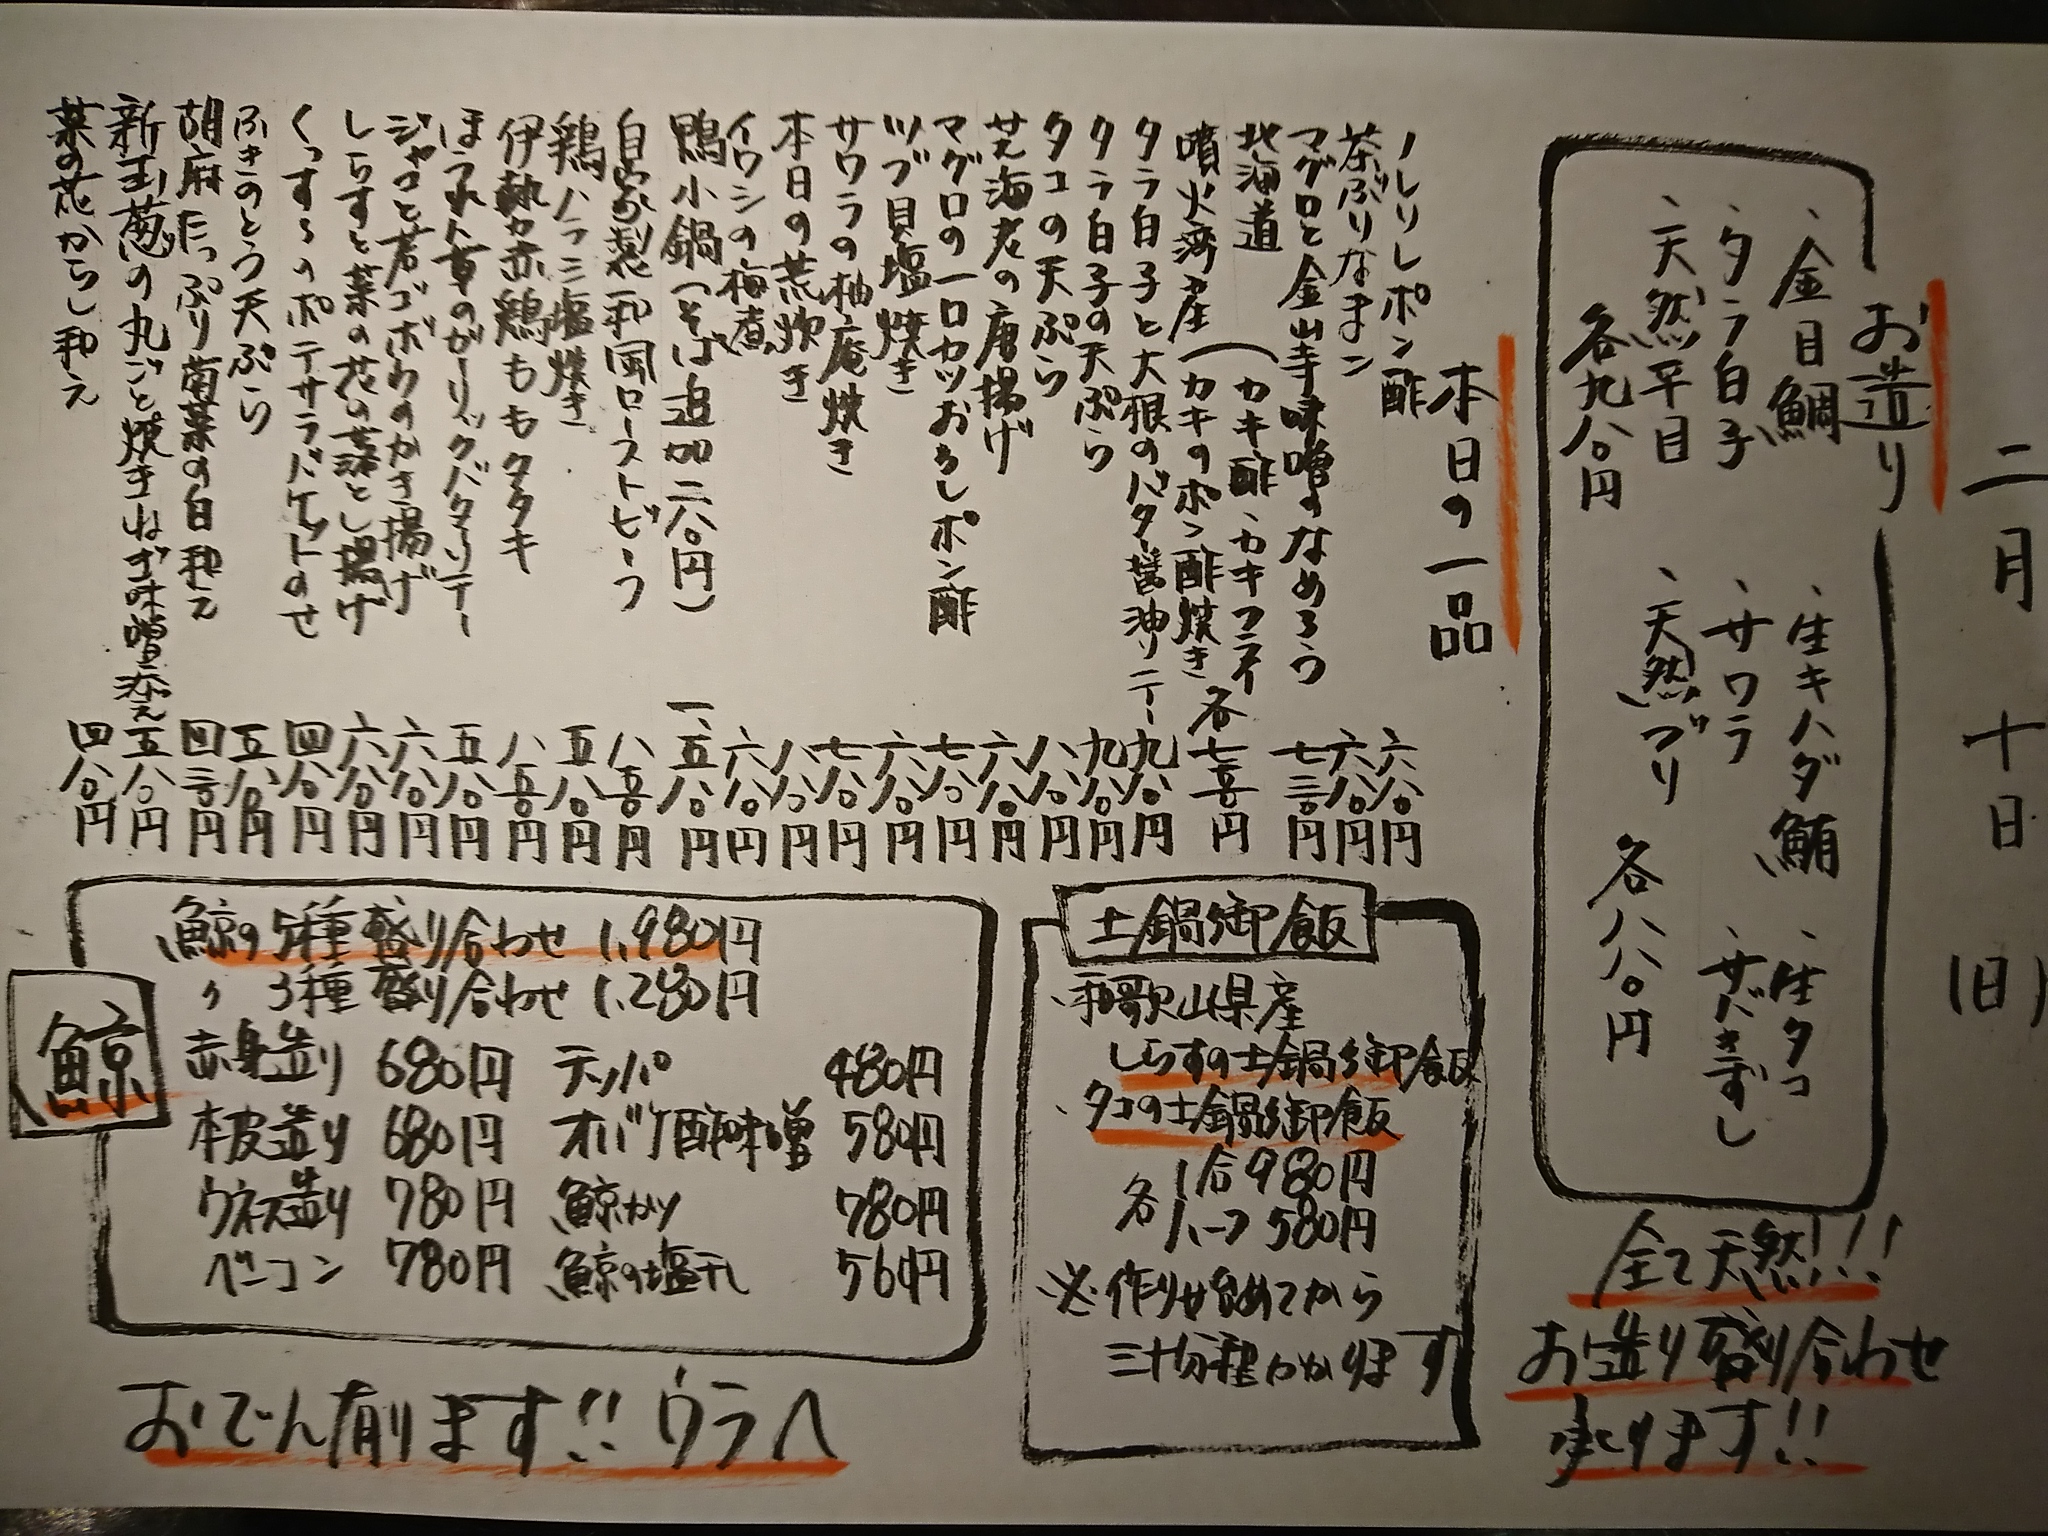 二月十日(日)
お造り
、金目鯛
、タラ白子
、天然平目
各九八〇円
、生キハダ鮪
、サワラ
、天然ブリ
、生タコ
、サバきずし
各八八〇円
全て天然!!
お造り盛り合わせ
承ります!!
本日の一品
ノレソレポン酢 六八〇円
茶ぶりなまこ 六八〇円
マグロと金山寺味噌のなめろう 七三〇円
北海道
噴火湾産(カキ酢、カキフライ
(カキのポン酢焼き 各七五〇円
タラ白子と大根のバター醤油ソテー 九八〇円
タラ白子の天ぷら 九八〇円
タコの天ぷら 八八〇円
芝海老の唐揚げ 六八〇円
マグロの一口カツおろしポン酢 七八〇円
ツブ貝塩焼き 六八〇円
サワラの柚庵焼き 七八〇円
本日の荒炊き 八八〇円
イワシの梅煮 六八〇円
鴨小鍋(そば追加二八〇円) 一、五八〇円
自家製和風ローストビーフ 八五〇円
鶏ハラミ塩焼き 五八〇円
伊勢赤鶏ももタタキ 八五〇円
ほうれん草のガーリックバターソテー 五八〇円
ジャコと若ゴボウのかき揚げ 六八〇円
しらすと菜の花の落とし揚げ 六八〇円
くっすんのポテサラバケットのせ 四八〇円
ふきのとう天ぷら 五八〇円
胡麻たっぷり菊菜の白和え 四三〇円
新玉葱の丸ごと焼きねぎ味噌添え 五八〇円
菜の花からし和え 四八〇円
土鍋御飯
、和歌山県産
しらすの土鍋御飯
、タコの土鍋御飯
各 1合980円
ハーフ580円
※作り始めてから
三十分程かかります
鯨
鯨の5種盛り合わせ 1,980円
〃 3種盛り合わせ 1,280円
赤身造り 680円 テッパ 480円
本皮造り 680円 オバケ酢味噌 580円
ウネス造り 780円 鯨カツ 780円
ベーコン 780円 鯨の塩干し 560円
おでん有ります!!ウラへ